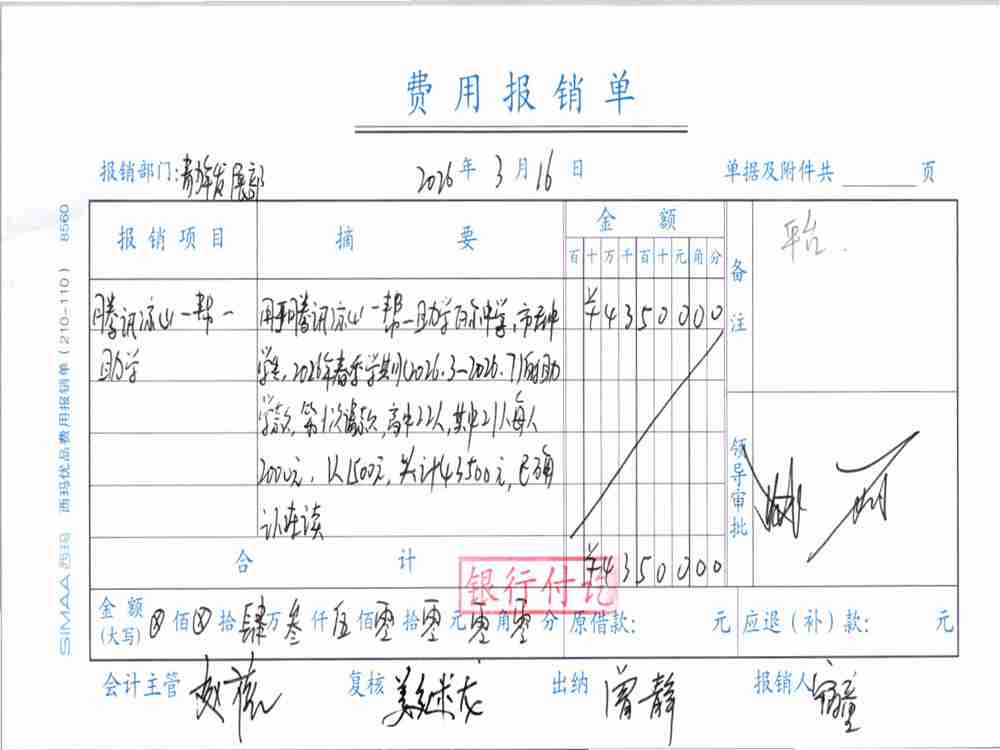 费用报销单
报销部门:青年发展部 2026年3月16日 单据及附件共 页
报销项目 摘要 金额 备注
百十万千百十元角分
平台.
腾讯凉山一帮一助学
¥4350000
用于腾讯凉山一帮一助学
学生,2026年春季学期(2026.3-2026.7)的助
学款,第1次请款,高中22人,其中21人每人
2000元,1人1500元,共计43500元,已确
认在读
领导审批
合计 ¥4350000
银行付讫
金额(大写)⊗佰⊗拾肆万叁仟伍佰零拾零元零角零分 原借款: 元 应退(补)款: 元
会计主管 复核 出纳 曾静 报销人
SIMAA 西玛 西玛优品费用报销单(210-110) 8560